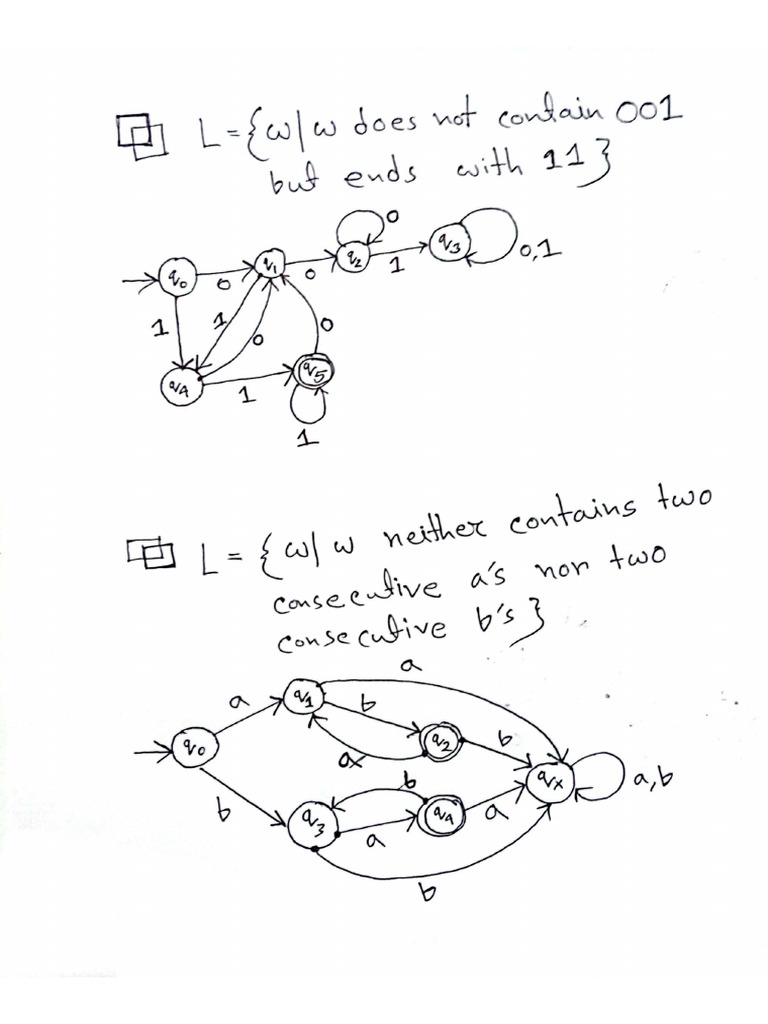 L = {w | w does not contain 001
but ends with 11}
0
q0
0
q1
0
q2
1
q3
0,1
1
1
0
0
q4
1
q5
1
L = {w | w neither contains two
consecutive a's nor two
consecutive b's}
a
a
q1
b
q0
a
q2
b
b
b
qx
a,b
q3
a
q4
a
b